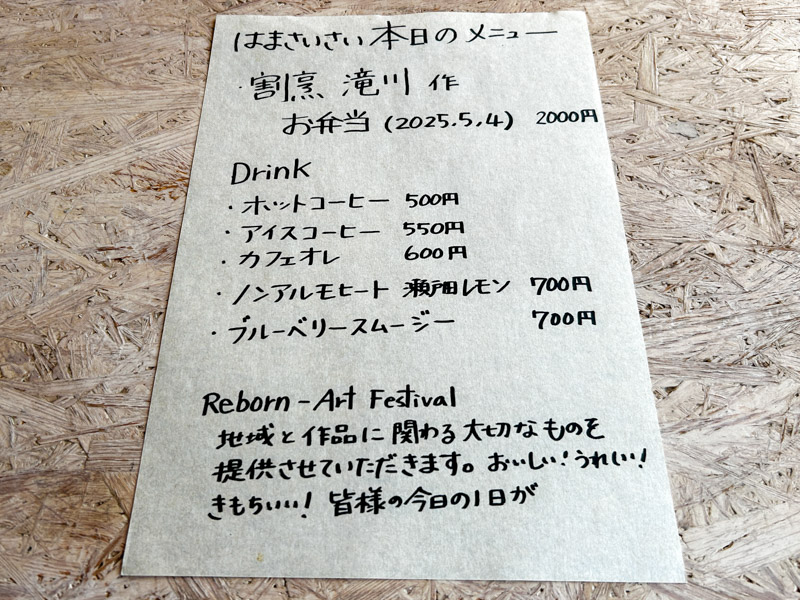 はまさいさい 本日の メニュー
・割烹 滝川 作
お弁当 (2025.5.4) 2000円
Drink
・ホットコーヒー 500円
・アイスコーヒー 550円
・カフェオレ 600円
・ノンアルモヒート 瀬戸田レモン 700円
・ブルーベリースムージー 700円
Reborn-Art Festival
地域と作品に関わる大切なものを
提供させていただきます。おいしい!うれしい!
きもちいい! 皆様の今日の1日が